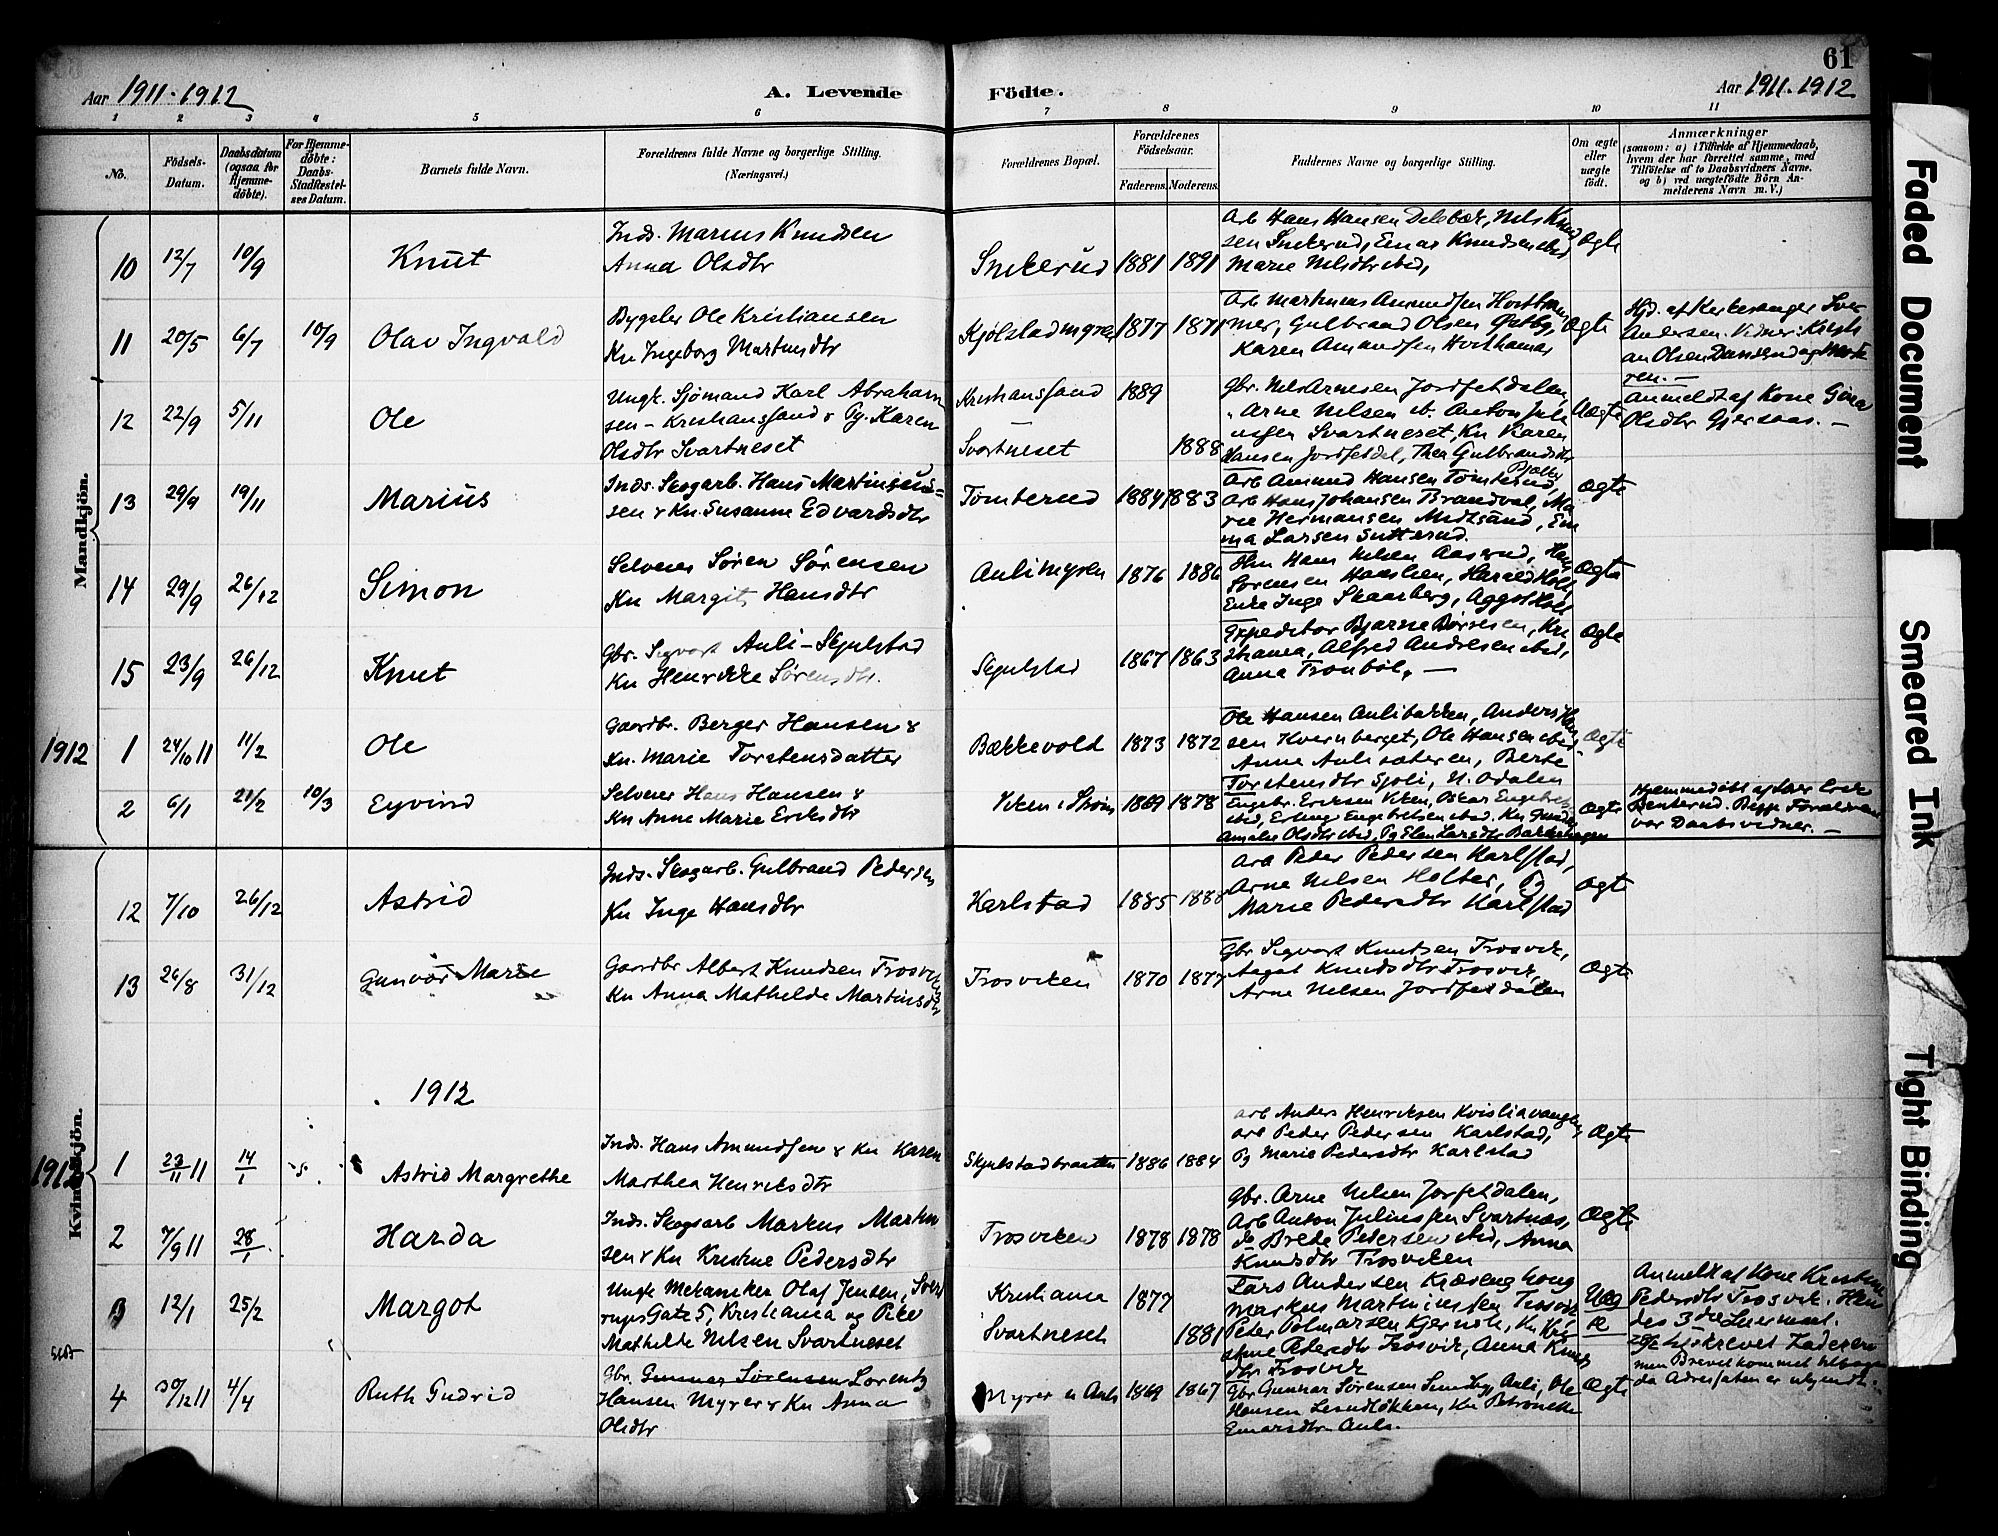 61
Aar 1911-1912 A. Levende Födte. Aar 1911-1912
1 2 3 4 5 6 7 8 9 10 11
No. Födsels-Datum. Daabsdatum (ogsaa for Hjemme-döbte). For Hjemme-döbte: Daabs-Stadfæstel-ses Datum. Barnets fulde Navn. Forældrenes fulde Navne og borgerlige Stilling. (Næringsvei.) Forældrenes Bopæl. Forældrenes Födselsaar. Faderens. Moderens. Faddernes Navne og borgerlige Stilling. Om ægte eller uægte födt. Anmærkninger (saasom: a) i Tilfælde af Hjemmedaab, hvem der har forrettet samme, med Tilföielse af to Daabsvidners Navne, og b) ved uægtefödte Börn An-melderens Navn m. V.)
Mandkjön.
10 12/7 10/9 Knut
Inds. Marius Knudsen
Anna Olsdtr
Snekerud 1881 1891
Arb Hans Hansen
sen Snekerud, Einar Knudsen ibid
Marie Nilsdtr ibid,
Ægte
11 20/5 6/7 10/9 Olav Ingvald
Bygsler Ole Kristiansen
Kn Ingeborg Martinsdtr
Kjølstadmyren 1877 1871
Arb Martinus Amundsen
mer, Gulbrand Olsen Østby,
Karen Amundsen
Ægte
Hjd. af Kirkesanger Iver
Andersen. Vidner: Kristi
an Olsen
ren. —
12 22/9 5/11 Ole
Ungk. Sjømand Karl Abraham
sen - Kristiansand & Pg. Karen
Olsdtr Svartneset
Kristiansand 1889
Svartneset 1888
Gbr. Nils Arnesen Jordfetdalen,
Arne Nilsen ib. Anton Juli
ussen Svartneset, Kn Karen
Hansen Jordfetdal, Thea Gulbrandsdtr
Uægte
Anmeldt af Kone Gina
Olsdtr Gjersaas. —
13 29/9 19/11 Marius
Inds. Skogarb. Hans Martinius-
sen & Kn. Susanne Edvardsdtr
Tomterud 1884 1883
Arb Amund Hansen Tomterud,
Arb Hans Johansen Brandval, Ma
rie Hermansen Midtsand, Em
ma Larsen Sutterud.
Ægte
14 29/9 26/12 Simon
Selveier Søren Sørensen
Kn Margit Hansdtr
Aulimyren 1876 1886
Hans Nilsen Aasrud, Hans
Sørensen Haaslien, Harald Holt,
Enke Inge Skaarberg, Aggot Holt
Ægte
15 23/9 26/12 Knut
Gbr. Sigvart Auli-Skjulstad
Kn Henrikke Sørensdtr.
Skjulstad 1867 1863
Expeditør Bjarne Børresen, Kri
stiania, Alfred Andresen ibid,
Anna Tronbøl. —
Ægte
1912 1 24/10 11 11/2 Ole
Gaardbr. Berger Hansen &
Kn. Marie Torstensdatter
Bækkevold 1873 1872
Ole Hansen Aulibakken, Anders Han
sen Kvernberget, Ole Hansen ibid.
Anna Aulisæteren, Berte
Torstensdtr Sjøli, N. Odalen
Ægte
2 6/1 21/2 10/3 Eyvind
Selveier Hans Hansen &
Kn Anne Marie Eriksdtr
Ikken i Strøm 1869 1878
Engebr. Eriksen Ikken, Oskar Engebret
ibid, Erling Engebretsen ibid. Kn
Amalie Olsdtr ibid, Pg Elen Larsdtr Bakkehagen
Ægte
Hjemmedøbt af
Begge Forældrene
var Daabsvidner. —
Kvindekjön.
12 7/10 26/12 Astrid
Inds. Skogarb. Gulbrand Pedersen
Kn Inge Hansdtr
Karlstad 1885 1888
Arb Peder Pedersen Karlstad,
Arne Nilsen Holter, Pg
Marie Pedersdtr Karlstad
Ægte
13 26/8 31/12 Gunvor Marie
Gaardbr Albert Knudsen Trosviken
Kn Anna Mathilde Martinsdtr
Trosviken 1870 1877
Gbr Sigvart Knutsen Trosvik,
Aagot Knudsdtr Trosvik,
Arne Nilsen Jordfetdalen
Ægte
1912
1912 1 23/11 11 14/1 Astrid Margrethe
Inds. Hans Amundsen & Kn Karen
Marthea Henriksdtr
Skjulstadbraaten 1886 1884
Arb Anders Henriksen Kvisliavangen,
Arb Peder Pedersen Karlstad,
Pg Marie Pedersdtr Karlstad
Ægte
2 7/9 11 28/1 Harda
Inds. Skogsarb Markus Martin
sen & Kn Kristine Pedersdtr
Trosviken 1878 1878
Gbr. Arne Nilsen Jorfetdalen,
Arb Anton Juliussen Svartnæs,
do Brede Petersen ibid, Anna
Knudsdtr Trosviken
Ægte
3 12/1 25/2 Margot
Ungk Mekaniker Olaf Jensen, Sver
rupsGate 5, Kristiania og Pike
Mathilde Nilsen Svartneset
Kristiania 1877
Svartneset 1881
Lars Andersen
Markus Martiniussen Trosvik,
Peter Kn Kri
stine Pedersdtr Trosvik, Anna Knuds
dtr Trosvik
Uæg
te
Anmeldt af Kone Kristine
Pedersdtr Trosvik.
tilskrevet Faderen
men Brevet kommet tilbage
da Adressaten er ukjendt.
4 30/12 11 4/4 Ruth Gudrid
Gbr. Gunnar Sørensen Lorentz
Hansen Myrer & Kn Anna
Olsdtr
Myrer u Auli 1869 1867
Gbr Gunnar Sørensen Auli, Ole
Hansen Lesudløkken, Kn Petronelle
Einarsdtr Auli.
Ægte
Faded Document
Smeared Ink
Tight Binding